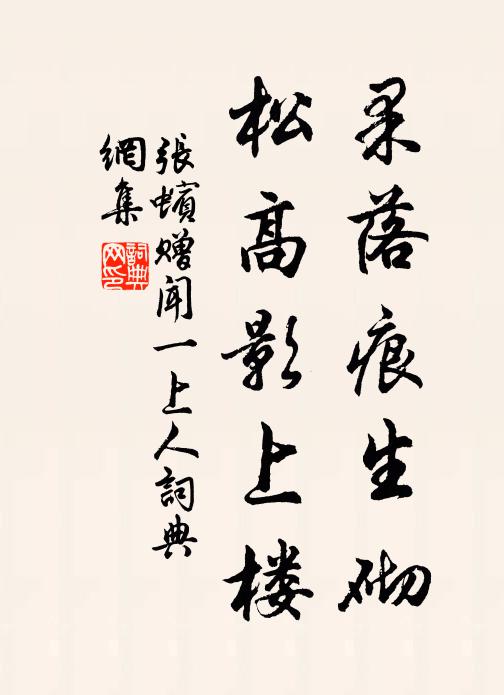 果落痕生砌
松高影上楼
張蠙赠聞一上人詞典
網集
詞典网印